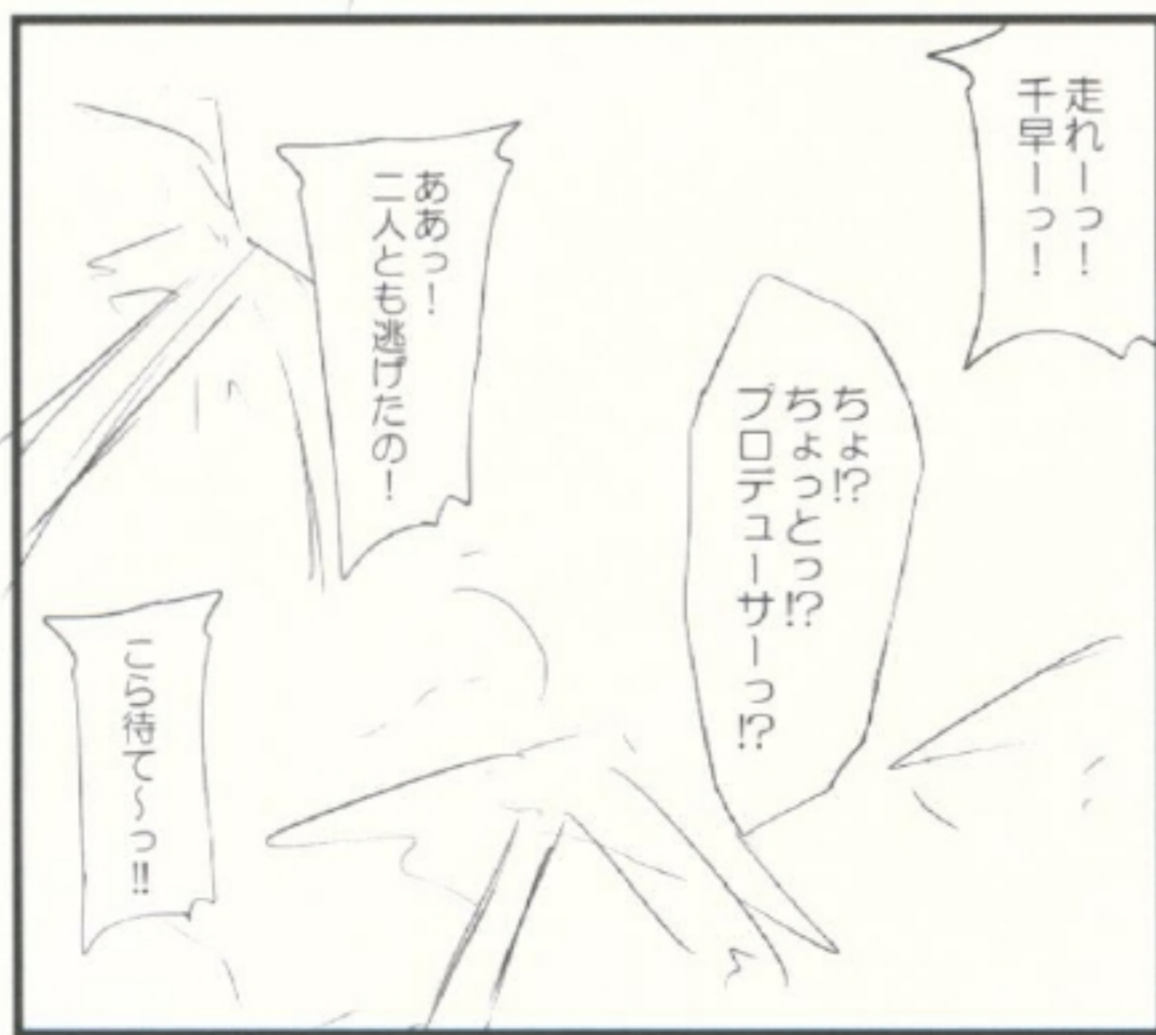 走れーっ！
千早ーっ！
ちょ!?
ちょっとっ!?
プロデューサーっ!?
ああっ！
二人とも逃げたの！
こら待て～っ!!